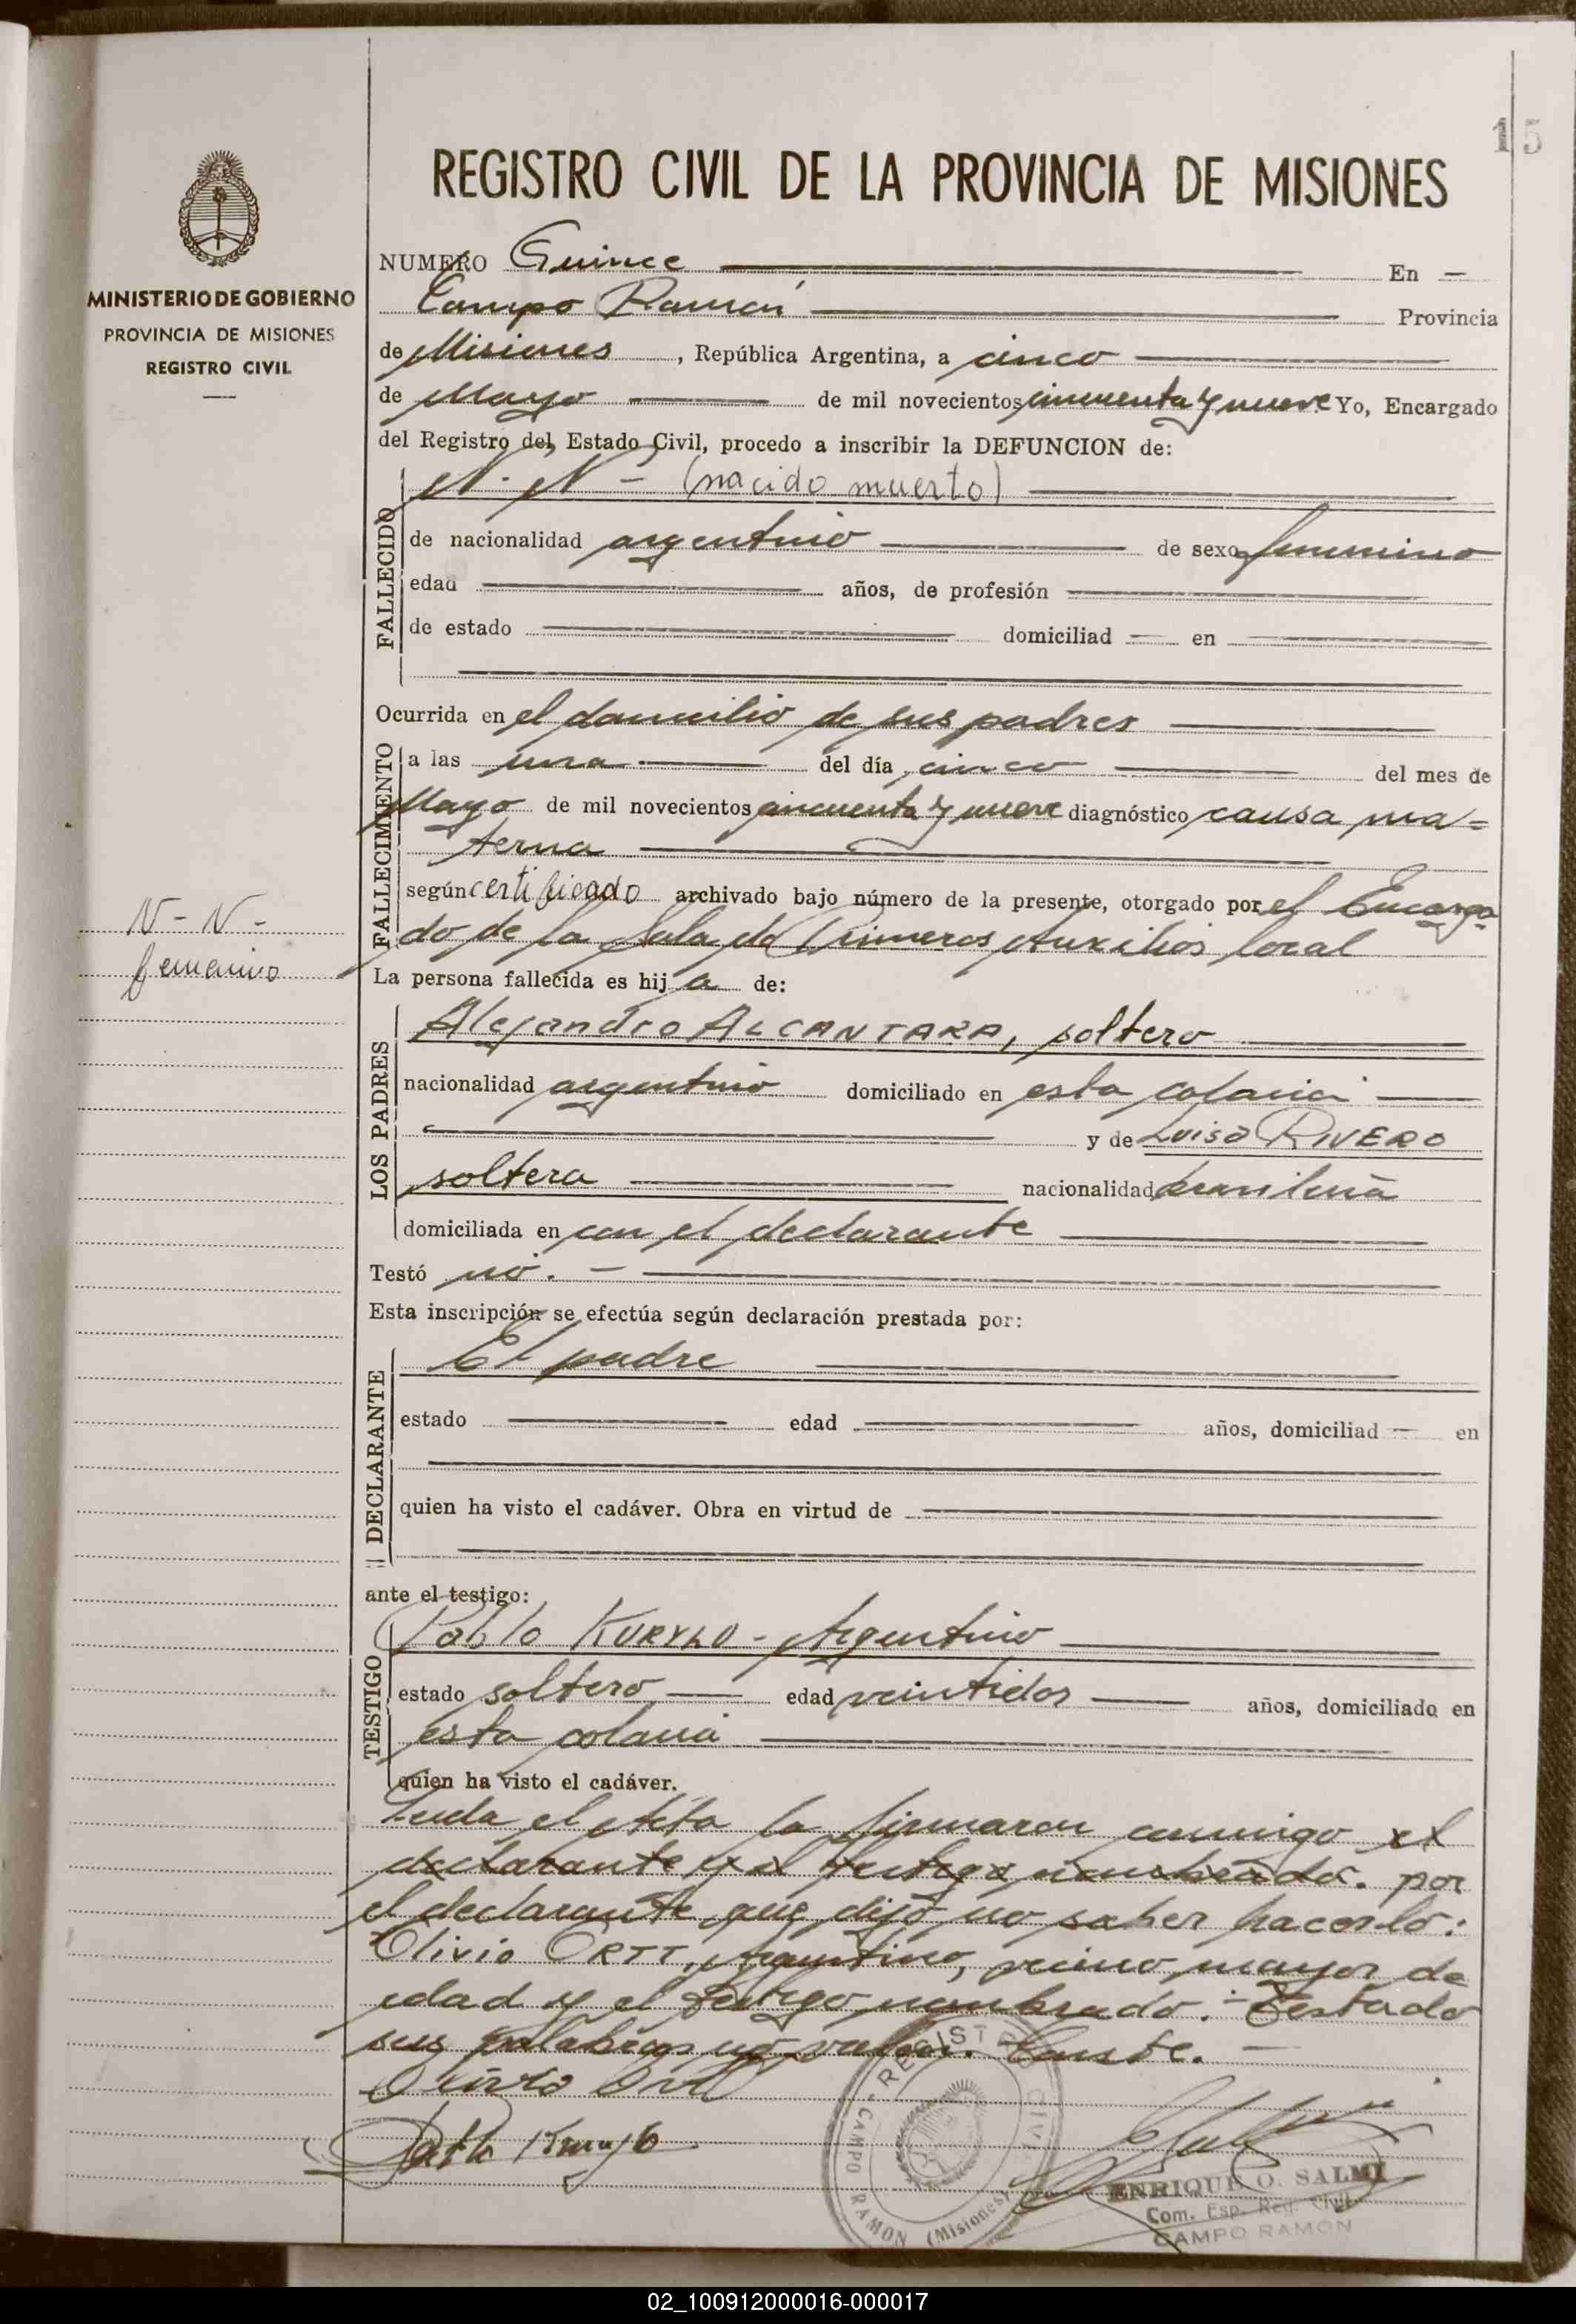 15
REGISTRO CIVIL DE LA PROVINCIA DE MISIONES
MINISTERIO DE GOBIERNO
PROVINCIA DE MISIONES
REGISTRO CIVIL
NUMERO Quince En
Campo Ramón Provincia
de Misiones, República Argentina, a cinco
de Mayo de mil novecientos cincuenta y nueve Yo, Encargado
del Registro del Estado Civil, procedo a inscribir la DEFUNCION de:
N. N - (nacido muerto)
FALLECIDO
de nacionalidad argentino de sexo femenino
edad años, de profesión
de estado domiciliad en
Ocurrida en el domicilio de sus padres
FALLECIMIENTO
a las una del día cinco del mes de
Mayo de mil novecientos cincuenta y nueve diagnóstico causa ma=
terna
según certificado archivado bajo número de la presente, otorgado por el Encarga
do de la Sala de Primeros Auxilios local
N-N-
femenino
La persona fallecida es hij a de:
LOS PADRES
Alejandro ALCANTARA, soltero
nacionalidad argentino domiciliado en esta colonia
y de Luisa RIVERO
soltera nacionalidad brasileña
domiciliada en con el declarante
Testó no. -
Esta inscripción se efectúa según declaración prestada por:
DECLARANTE
El padre
estado edad años, domiciliad en
quien ha visto el cadáver. Obra en virtud de
ante el testigo:
TESTIGO
Pablo KURYLO - Argentino
estado soltero edad veintidos años, domiciliado en
esta colonia
quien ha visto el cadáver.
Leida el Acta la firmaron conmigo el
declarante y el testigo nombrado. por
el declarante que dijo no saber hacerlo:
Olivio ORTT, Argentino, vecino, mayor de
edad y el testigo nombrado. - Testado
seis palabras no valen. Conste. -
REGISTRO CIVIL
CAMPO RAMON (Misiones)
ENRIQUE O. SALMI
Com. Esp. Reg. Civil
CAMPO RAMON
02_100912000016-000017